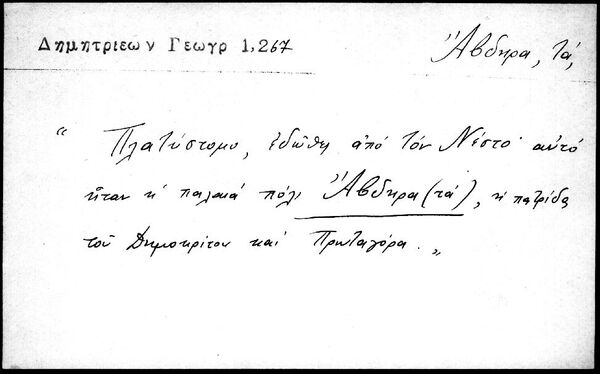 Δημητριεων Γεωγρ 1,267
Ἄβδηρα, τά,
“ Πλατύστομο, ἐδῶθε ἀπό τόν Νέστο· αὐτό
ἦταν ἡ παλαιά πόλι Ἄβδηρα (τά), ἡ πατρίδα
τοῦ Δημοκρίτου καί Πρωταγόρα. „